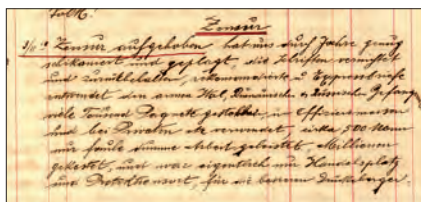 Folk.
Zensur
3/11 19 Zensur aufgehoben hat uns durch Jahre genug
schikaniert und geplagt, die Schriften vernichtet
und zurückbehalten, rekomandierte u Expressbriefe
entwendet den armen Ital, Rumänische u Russische Gefang
viele Tausend Pagnete gestohlen, in Offiziersmessen
und bei Privaten etc verwendet, cirka 700 Mann
nur faule dumme Arbeit geleistet, Millionen
gekostet, und war eigentlich nur Handelsplatz
und Protektionsort, für die besseren Drückeberger.